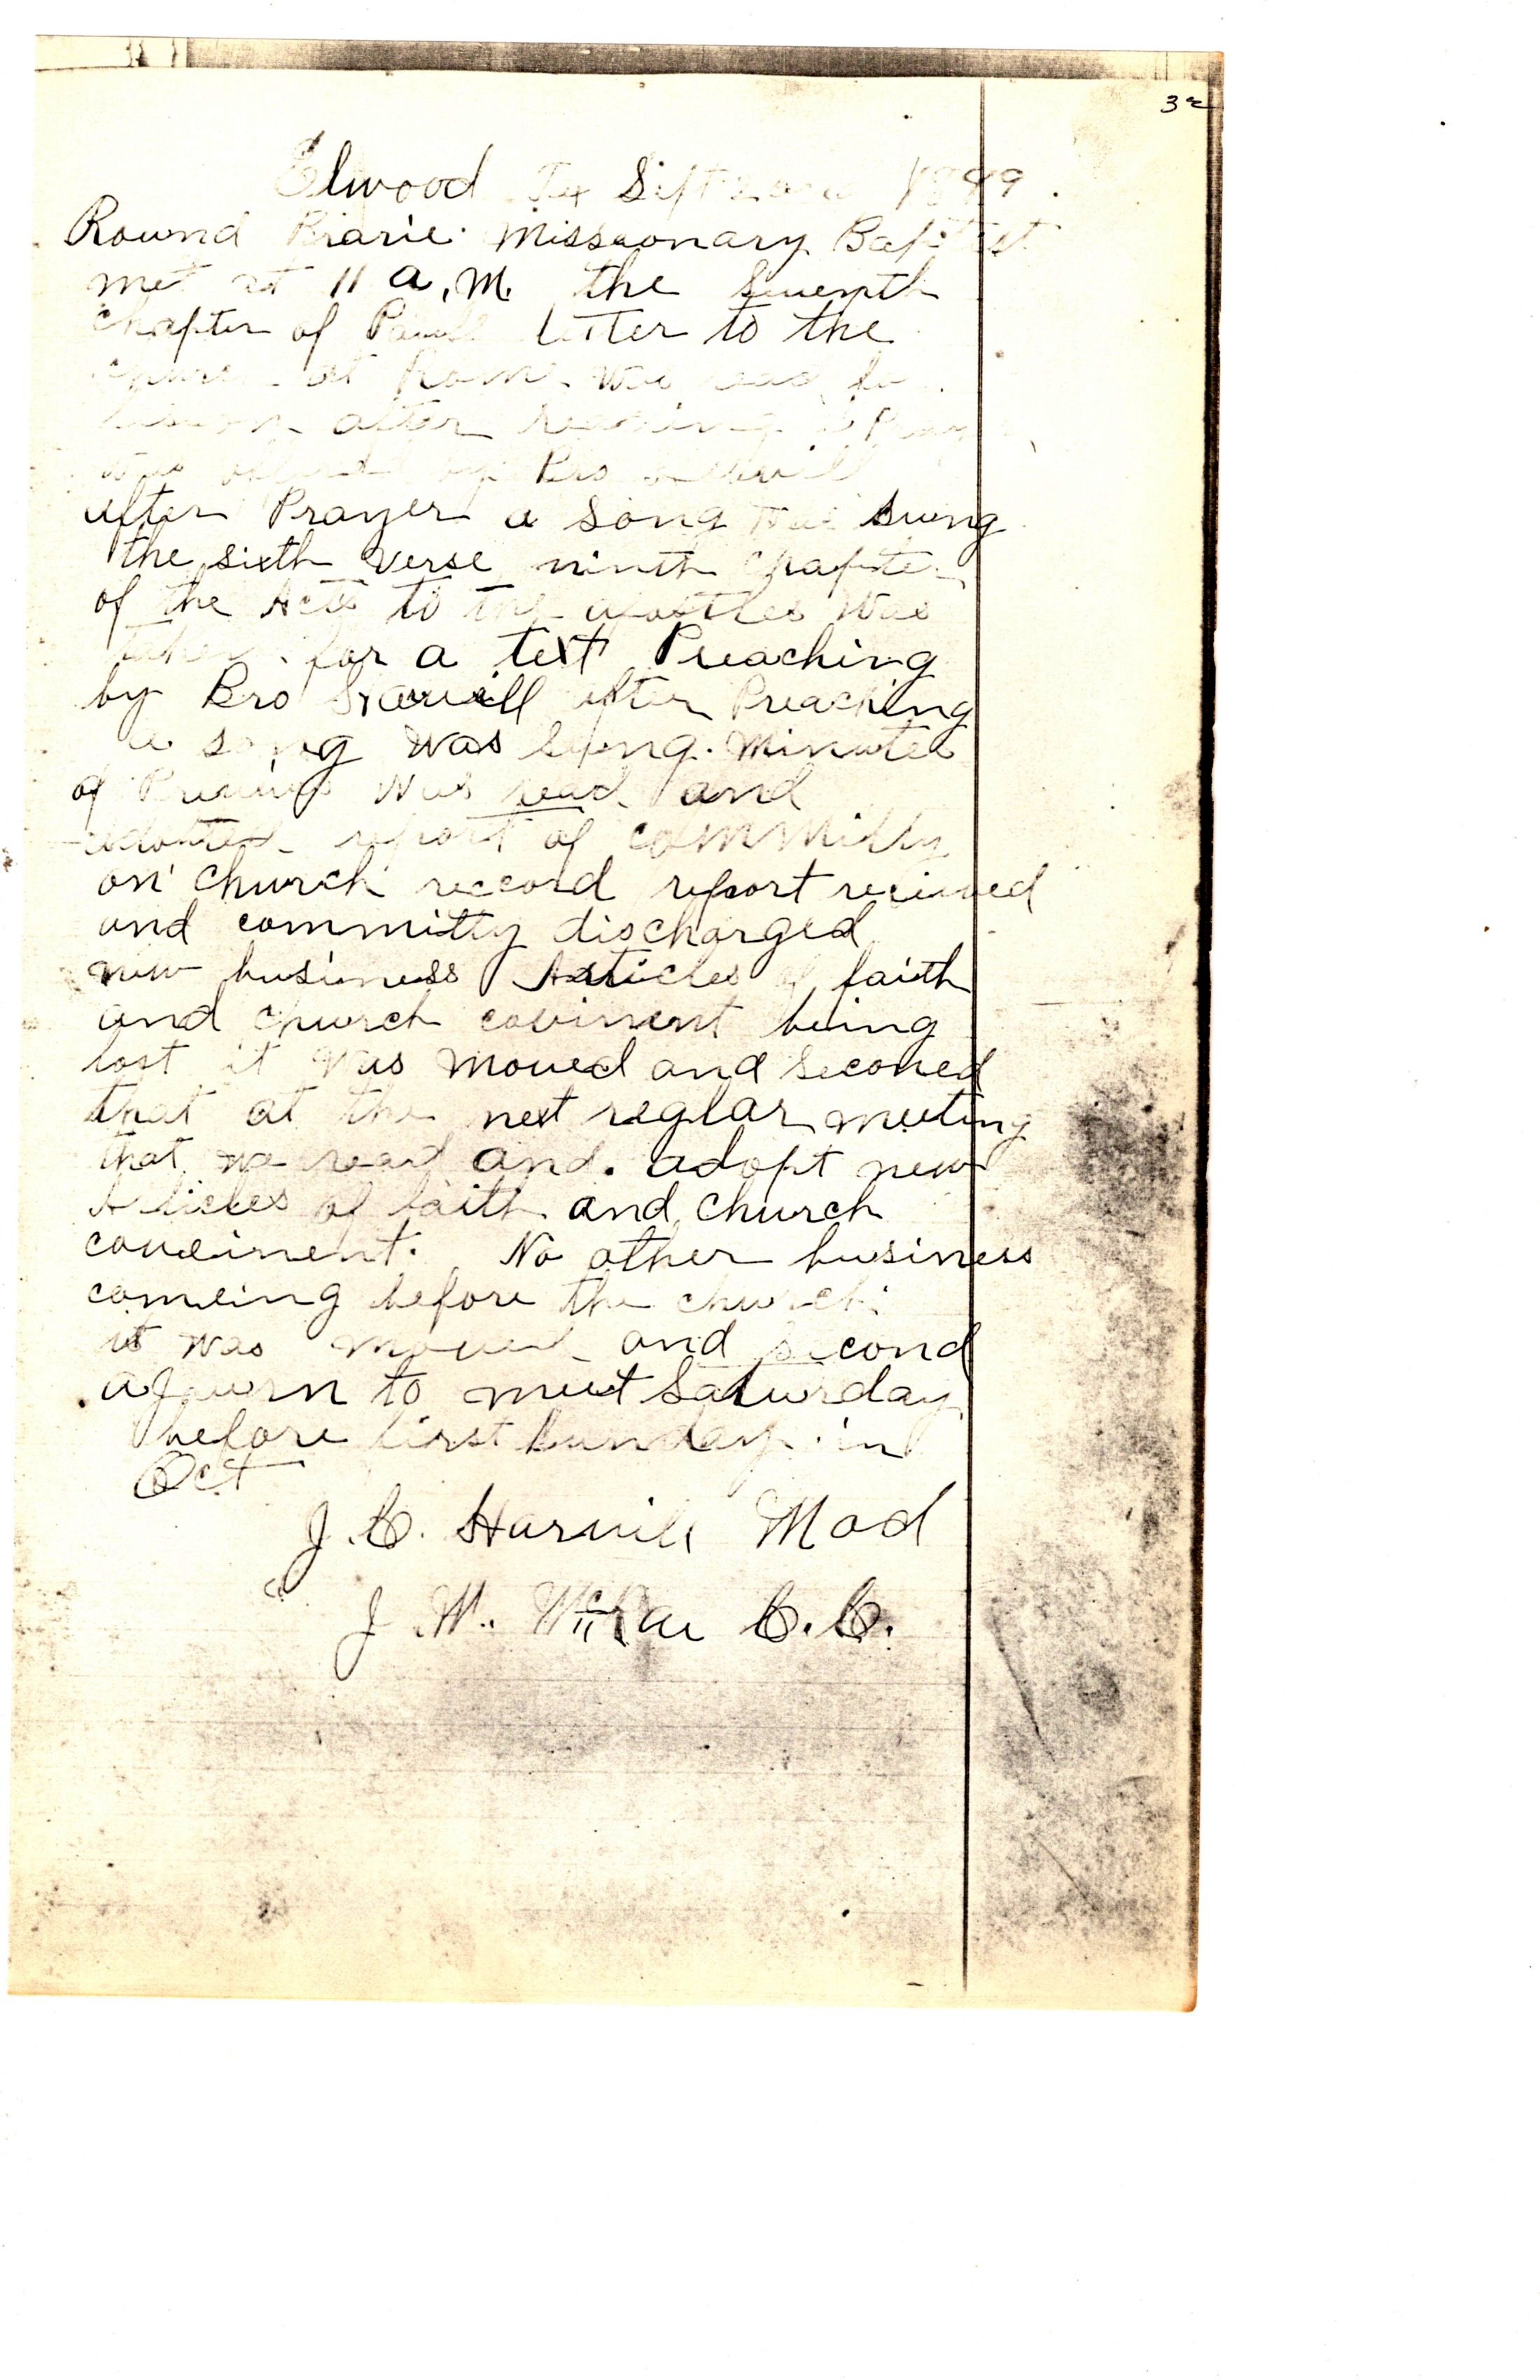 32
Elwood Tx Sept 1899.
Round Prarie Missionary Baptist
met at 11 a.m. the Seventh
chapter of Pauls letter to the
at Rome was read
after reading Prayer
was by Bro
after Prayer a song was sung
the sixth verse ninth chapter
of the Acts to the apostles was
taken for a text Preaching
by Bro Harvill after Preaching
a song was sung. Minutes
of Previus was read and
adopted report of committy
on church reccord report recieved
and committy discharged
new business Articles of faith
and church covinent being
lost it was moved and seconed
that at the next reglar meeting
that we read and adopt new
Articles of faith and church
coveinent. No other business
comeing before the church
it was moved and second
ajourn to meet Saturday
before first Sunday in
Oct
J.C. Harvill Mod
J.W. McRae C.C.